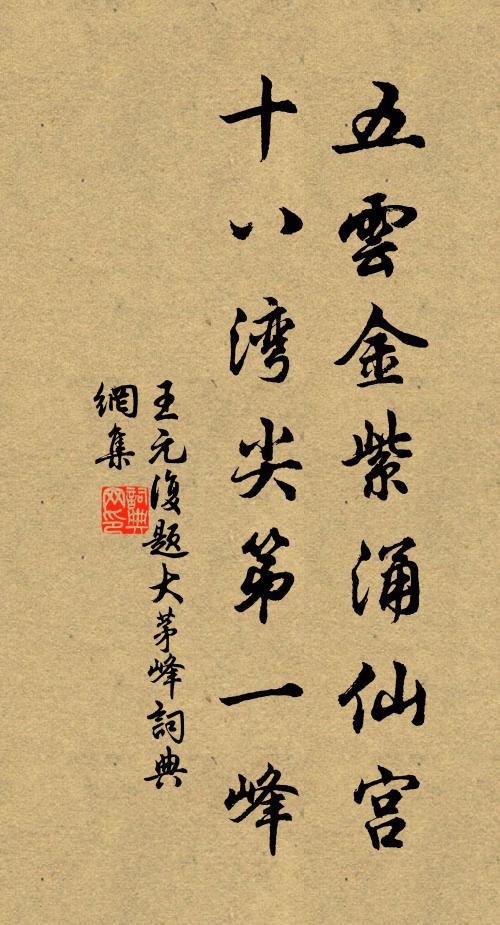 五雲金紫涌仙宫
十八湾尖第一峰
王元復題大茅峰詞典
網集
詞典网印